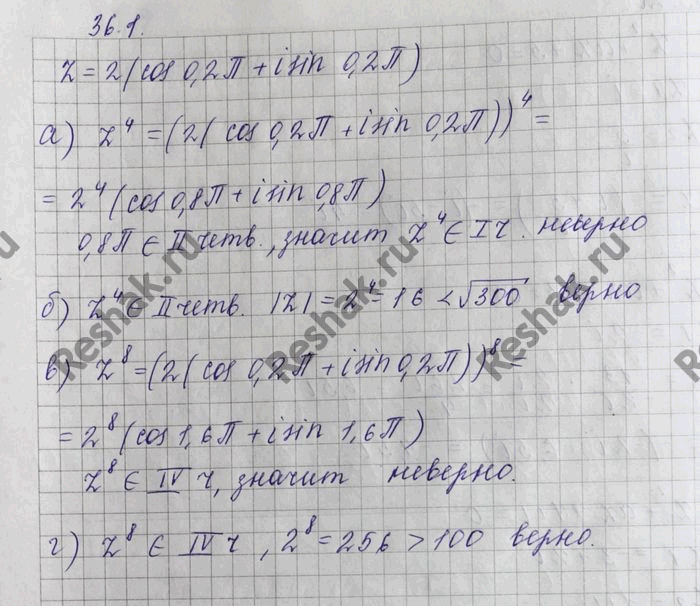 36.1.
z = 2(cos 0,2π + i sin 0,2π)
а) z⁴ = (2(cos 0,2π + i sin 0,2π))⁴ =
= 2⁴(cos 0,8π + i sin 0,8π)
0,8π ∈ II четв., значит z⁴ ∈ I ч. неверно
б) z⁴ ∈ II четв. |z| = 2⁴ = 16 < √300 верно
в) z⁸ = (2(cos 0,2π + i sin 0,2π))⁸ =
= 2⁸(cos 1,6π + i sin 1,6π)
z⁸ ∈ IV ч, значит неверно.
г) z⁸ ∈ IV ч, 2⁸ = 256 > 100 верно.
Reshak.ru
Reshak.ru
Reshak.ru